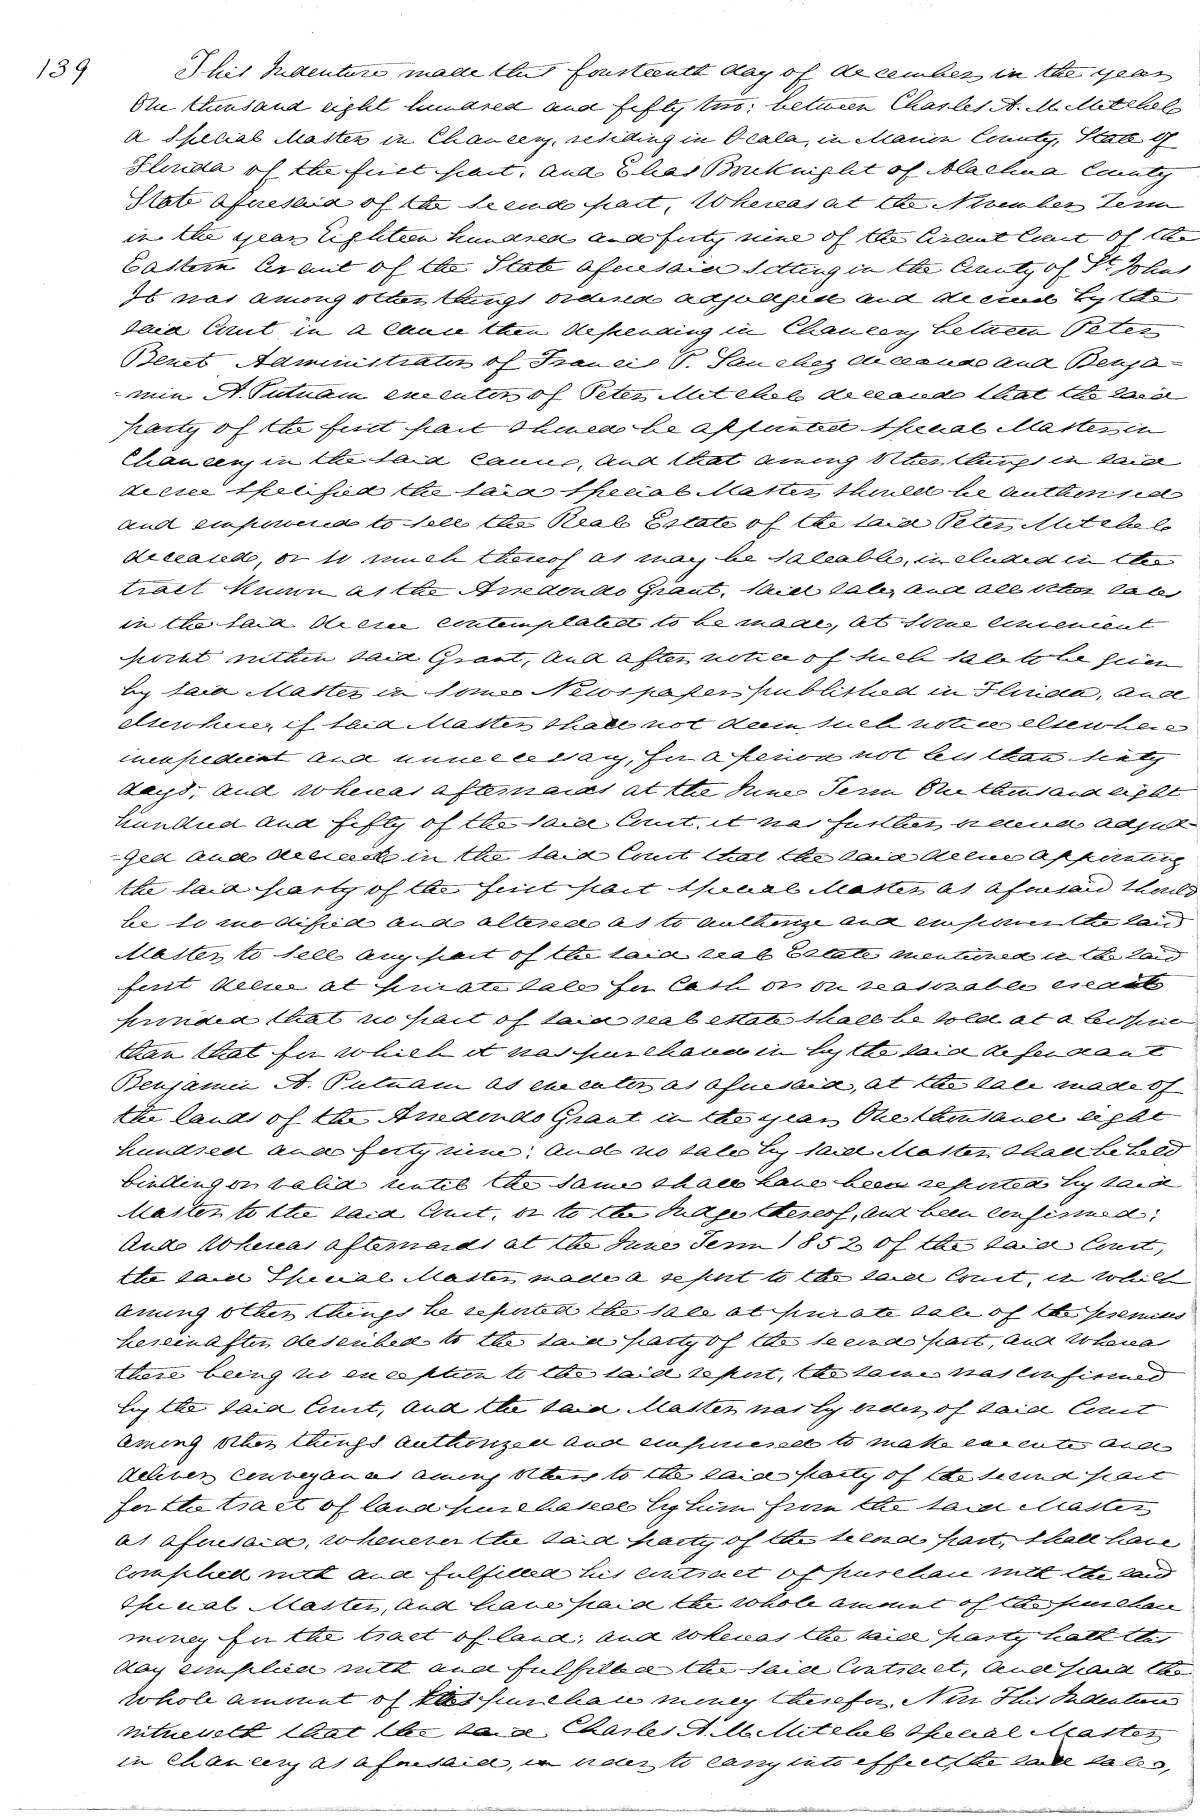 139 This Indenture made this fourteenth day of december in the year
One thousand eight hundred and fifty two: between Charles A. M. Mitchel
a special Master in Chancery, residing in Ocala, in Marion County, State of
Florida of the first part, and Elias Bouknight of Alachua County
State aforesaid of the second part, Whereas at the November Term
in the year Eighteen hundred and forty nine of the Circuit Court of the
Eastern Circuit of the State aforesaid sitting in the County of St. Johns
It was among other things ordered adjudged and decreed by the
said Court in a cause then depending in Chancery between Peter
Benet Administrator of Francis P. Sanchez deceased and Benja=
=min A. Putnam executor of Peter Mitchel deceased that the said
party of the first part should be appointed special Master in
Chancery in the said cause, and that among other things in said
decree specified the said special Master should be authorised
and empowered to sell the Real Estate of the said Peter Mitchel
deceased, or so much thereof as may be saleable, included in the
tract known as the Arredondo Grant, said sale, and all other sales
in the said decree contemplated to be made, at some convenient
point within said Grant, and after notice of such sale to be given
by said Master in some Newspaper published in Florida, and
elsewhere, if said Master shall not deem such notice elsewhere
inexpedient and unnecessary, for a period not less than sixty
days; and whereas afterwards at the June Term One thousand eight
hundred and fifty of the said Court, it was further ordered adjud=
=ged and decreed in the said Court that the said decree appointing
the said party of the first part special Master as aforesaid should
be so modified and altered as to authorize and empower the said
Master to sell any part of the said real Estate mentioned in the said
first decree at private sale for Cash or on reasonable credit
provided that no part of said real estate shall be sold at a less price
than that for which it was purchased in by the said defendant
Benjamin A. Putnam as executor as aforesaid, at the sale made of
the lands of the Arredondo Grant in the year One thousand eight
hundred and forty nine; and no sale by said Master shall be held
binding or valid until the same shall have been reported by said
Master to the said Court, or to the Judge thereof, and been confirmed;
And Whereas afterwards at the June Term 1852 of the said Court,
the said Special Master made a report to the said Court, in which
among other things he reported the sale at private sale of the premises
hereinafter described to the said party of the second part, and whereas
there being no exception to the said report, the same was confirmed
by the said Court, and the said Master was by order of said Court
among other things authorized and empowered to make execute and
deliver conveyances among others to the said party of the second part
for the tract of land purchased by him from the said Master
as aforesaid, whenever the said party of the second part, shall have
complied with and fulfilled his contract of purchase with the said
special Master, and have paid the whole amount of the purchase
money for the tract of land; and whereas the said party hath this
day complied with and fulfilled the said Contract, and paid the
whole amount of his purchase money therefor, Now This Indenture
witnesseth that the said Charles A. M. Mitchel special Master
in chancery as aforesaid, in order to carry into effect the said sale,